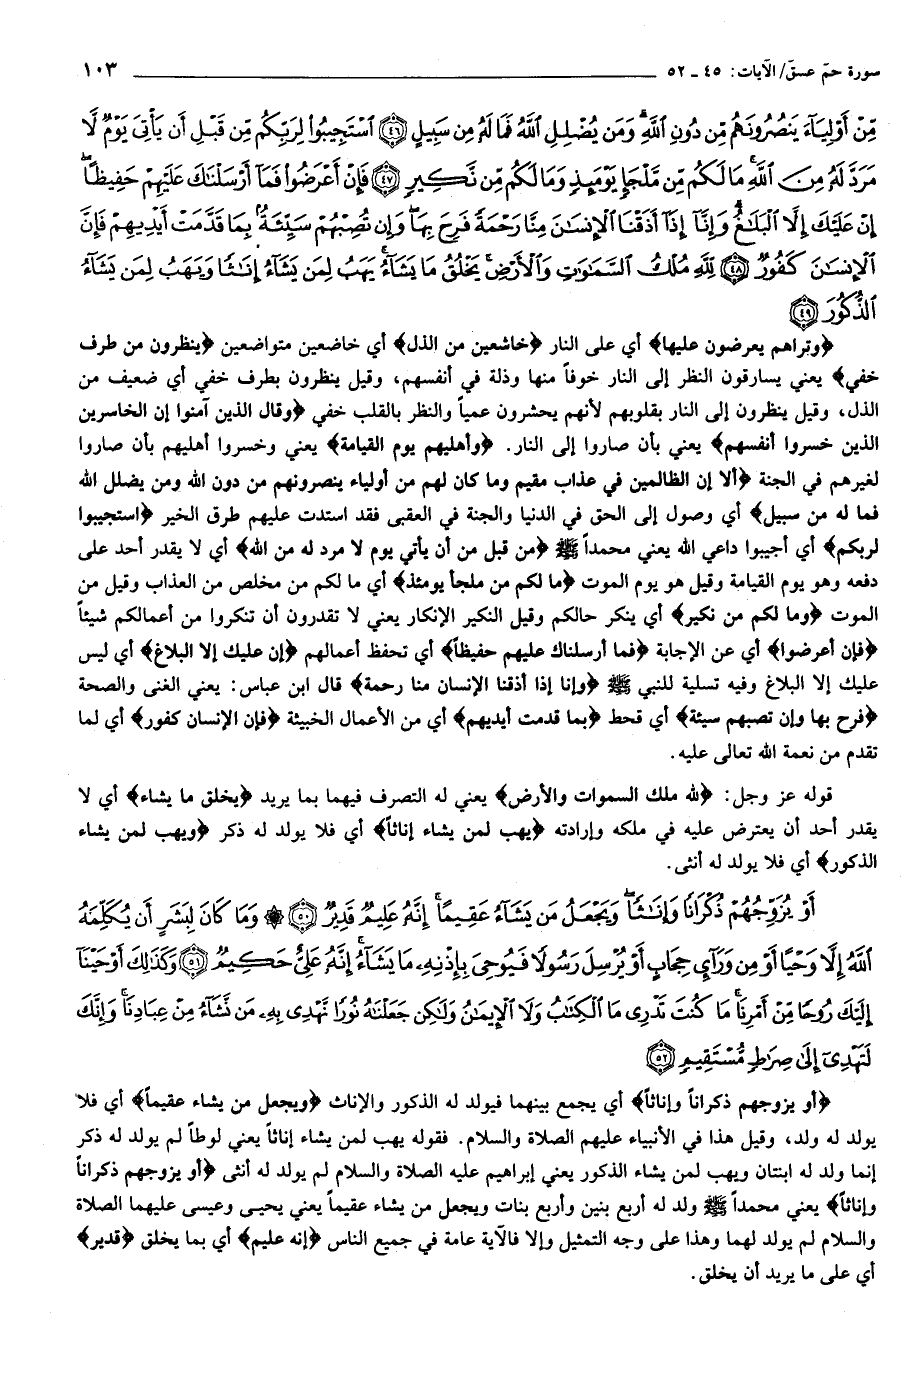 سورة حمّ عسق/ الآيات: ٤٥ ـ ٥٢ ١٠٣
مِّنْ أَوْلِيَآءَ يَنصُرُونَهُم مِّن دُونِ ٱللَّهِ ۗ وَمَن يُضْلِلِ ٱللَّهُ فَمَا لَهُۥ مِن سَبِيلٍ ﴿٤٦﴾ ٱسْتَجِيبُوا۟ لِرَبِّكُم مِّن قَبْلِ أَن يَأْتِىَ يَوْمٌ لَّا
مَرَدَّ لَهُۥ مِنَ ٱللَّهِ ۚ مَا لَكُم مِّن مَّلْجَإٍ يَوْمَئِذٍ وَمَا لَكُم مِّن نَّكِيرٍ ﴿٤٧﴾ فَإِنْ أَعْرَضُوا۟ فَمَآ أَرْسَلْنَٰكَ عَلَيْهِمْ حَفِيظًا ۖ
إِنْ عَلَيْكَ إِلَّا ٱلْبَلَٰغُ ۗ وَإِنَّآ إِذَآ أَذَقْنَا ٱلْإِنسَٰنَ مِنَّا رَحْمَةً فَرِحَ بِهَا ۖ وَإِن تُصِبْهُمْ سَيِّئَةٌۢ بِمَا قَدَّمَتْ أَيْدِيهِمْ فَإِنَّ
ٱلْإِنسَٰنَ كَفُورٌ ﴿٤٨﴾ لِّلَّهِ مُلْكُ ٱلسَّمَٰوَٰتِ وَٱلْأَرْضِ ۚ يَخْلُقُ مَا يَشَآءُ ۚ يَهَبُ لِمَن يَشَآءُ إِنَٰثًا وَيَهَبُ لِمَن يَشَآءُ
ٱلذُّكُورَ ﴿٤٩﴾
﴿وتراهم يعرضون عليها﴾ أي على النار ﴿خاشعين من الذل﴾ أي خاضعين متواضعين ﴿ينظرون من طرف
خفي﴾ يعني يسارقون النظر إلى النار خوفاً منها وذلة في أنفسهم، وقيل ينظرون بطرف خفي أي ضعيف من
الذل، وقيل ينظرون إلى النار بقلوبهم لأنهم يحشرون عمياً والنظر بالقلب خفي ﴿وقال الذين آمنوا إن الخاسرين
الذين خسروا أنفسهم﴾ يعني بأن صاروا إلى النار. ﴿وأهليهم يوم القيامة﴾ يعني وخسروا أهليهم بأن صاروا
لغيرهم في الجنة ﴿ألا إن الظالمين في عذاب مقيم وما كان لهم من أولياء ينصرونهم من دون الله ومن يضلل الله
فما له من سبيل﴾ أي وصول إلى الحق في الدنيا والجنة في العقبى فقد استدت عليهم طرق الخير ﴿استجيبوا
لربكم﴾ أي أجيبوا داعي الله يعني محمداً ﷺ ﴿من قبل من أن يأتي يوم لا مرد له من الله﴾ أي لا يقدر أحد على
دفعه وهو يوم القيامة وقيل هو يوم الموت ﴿ما لكم من ملجأ يومئذ﴾ أي ما لكم من مخلص من العذاب وقيل من
الموت ﴿وما لكم من نكير﴾ أي ينكر حالكم وقيل النكير الإنكار يعني لا تقدرون أن تنكروا من أعمالكم شيئاً
﴿فإن أعرضوا﴾ أي عن الإجابة ﴿فما أرسلناك عليهم حفيظاً﴾ أي تحفظ أعمالهم ﴿إن عليك إلا البلاغ﴾ أي ليس
عليك إلا البلاغ وفيه تسلية للنبي ﷺ ﴿وإنا إذا أذقنا الإنسان منا رحمة﴾ قال ابن عباس: يعني الغنى والصحة
﴿فرح بها وإن تصبهم سيئة﴾ أي قحط ﴿بما قدمت أيديهم﴾ أي من الأعمال الخبيثة ﴿فإن الإنسان كفور﴾ أي لما
تقدم من نعمة الله تعالى عليه.
قوله عز وجل: ﴿لله ملك السموات والأرض﴾ يعني له التصرف فيهما بما يريد ﴿يخلق ما يشاء﴾ أي لا
يقدر أحد أن يعترض عليه في ملكه وإرادته ﴿يهب لمن يشاء إناثاً﴾ أي فلا يولد له ذكر ﴿ويهب لمن يشاء
الذكور﴾ أي فلا يولد له أنثى.
أَوْ يُزَوِّجُهُمْ ذُكْرَانًا وَإِنَٰثًا ۖ وَيَجْعَلُ مَن يَشَآءُ عَقِيمًا ۚ إِنَّهُۥ عَلِيمٌ قَدِيرٌ ﴿٥٠﴾ ۞ وَمَا كَانَ لِبَشَرٍ أَن يُكَلِّمَهُ
ٱللَّهُ إِلَّا وَحْيًا أَوْ مِن وَرَآئِ حِجَابٍ أَوْ يُرْسِلَ رَسُولًا فَيُوحِىَ بِإِذْنِهِۦ مَا يَشَآءُ ۚ إِنَّهُۥ عَلِىٌّ حَكِيمٌ ﴿٥١﴾ وَكَذَٰلِكَ أَوْحَيْنَآ
إِلَيْكَ رُوحًا مِّنْ أَمْرِنَا ۚ مَا كُنتَ تَدْرِى مَا ٱلْكِتَٰبُ وَلَا ٱلْإِيمَٰنُ وَلَٰكِن جَعَلْنَٰهُ نُورًا نَّهْدِى بِهِۦ مَن نَّشَآءُ مِنْ عِبَادِنَا ۚ وَإِنَّكَ
لَتَهْدِىٓ إِلَىٰ صِرَٰطٍ مُّسْتَقِيمٍ ﴿٥٢﴾
﴿أو يزوجهم ذكراناً وإناثاً﴾ أي يجمع بينهما فيولد له الذكور والإناث ﴿ويجعل من يشاء عقيماً﴾ أي فلا
يولد له ولد، وقيل هذا في الأنبياء عليهم الصلاة والسلام. فقوله يهب لمن يشاء إناثاً يعني لوطاً لم يولد له ذكر
إنما ولد له ابنتان ويهب لمن يشاء الذكور يعني إبراهيم عليه الصلاة والسلام لم يولد له أنثى ﴿أو يزوجهم ذكراناً
وإناثاً﴾ يعني محمداً ﷺ ولد له أربع بنين وأربع بنات ويجعل من يشاء عقيماً يعني يحيى وعيسى عليهما الصلاة
والسلام لم يولد لهما وهذا على وجه التمثيل وإلا فالآية عامة في جميع الناس ﴿إنه عليم﴾ أي بما يخلق ﴿قدير﴾
أي على ما يريد أن يخلق.